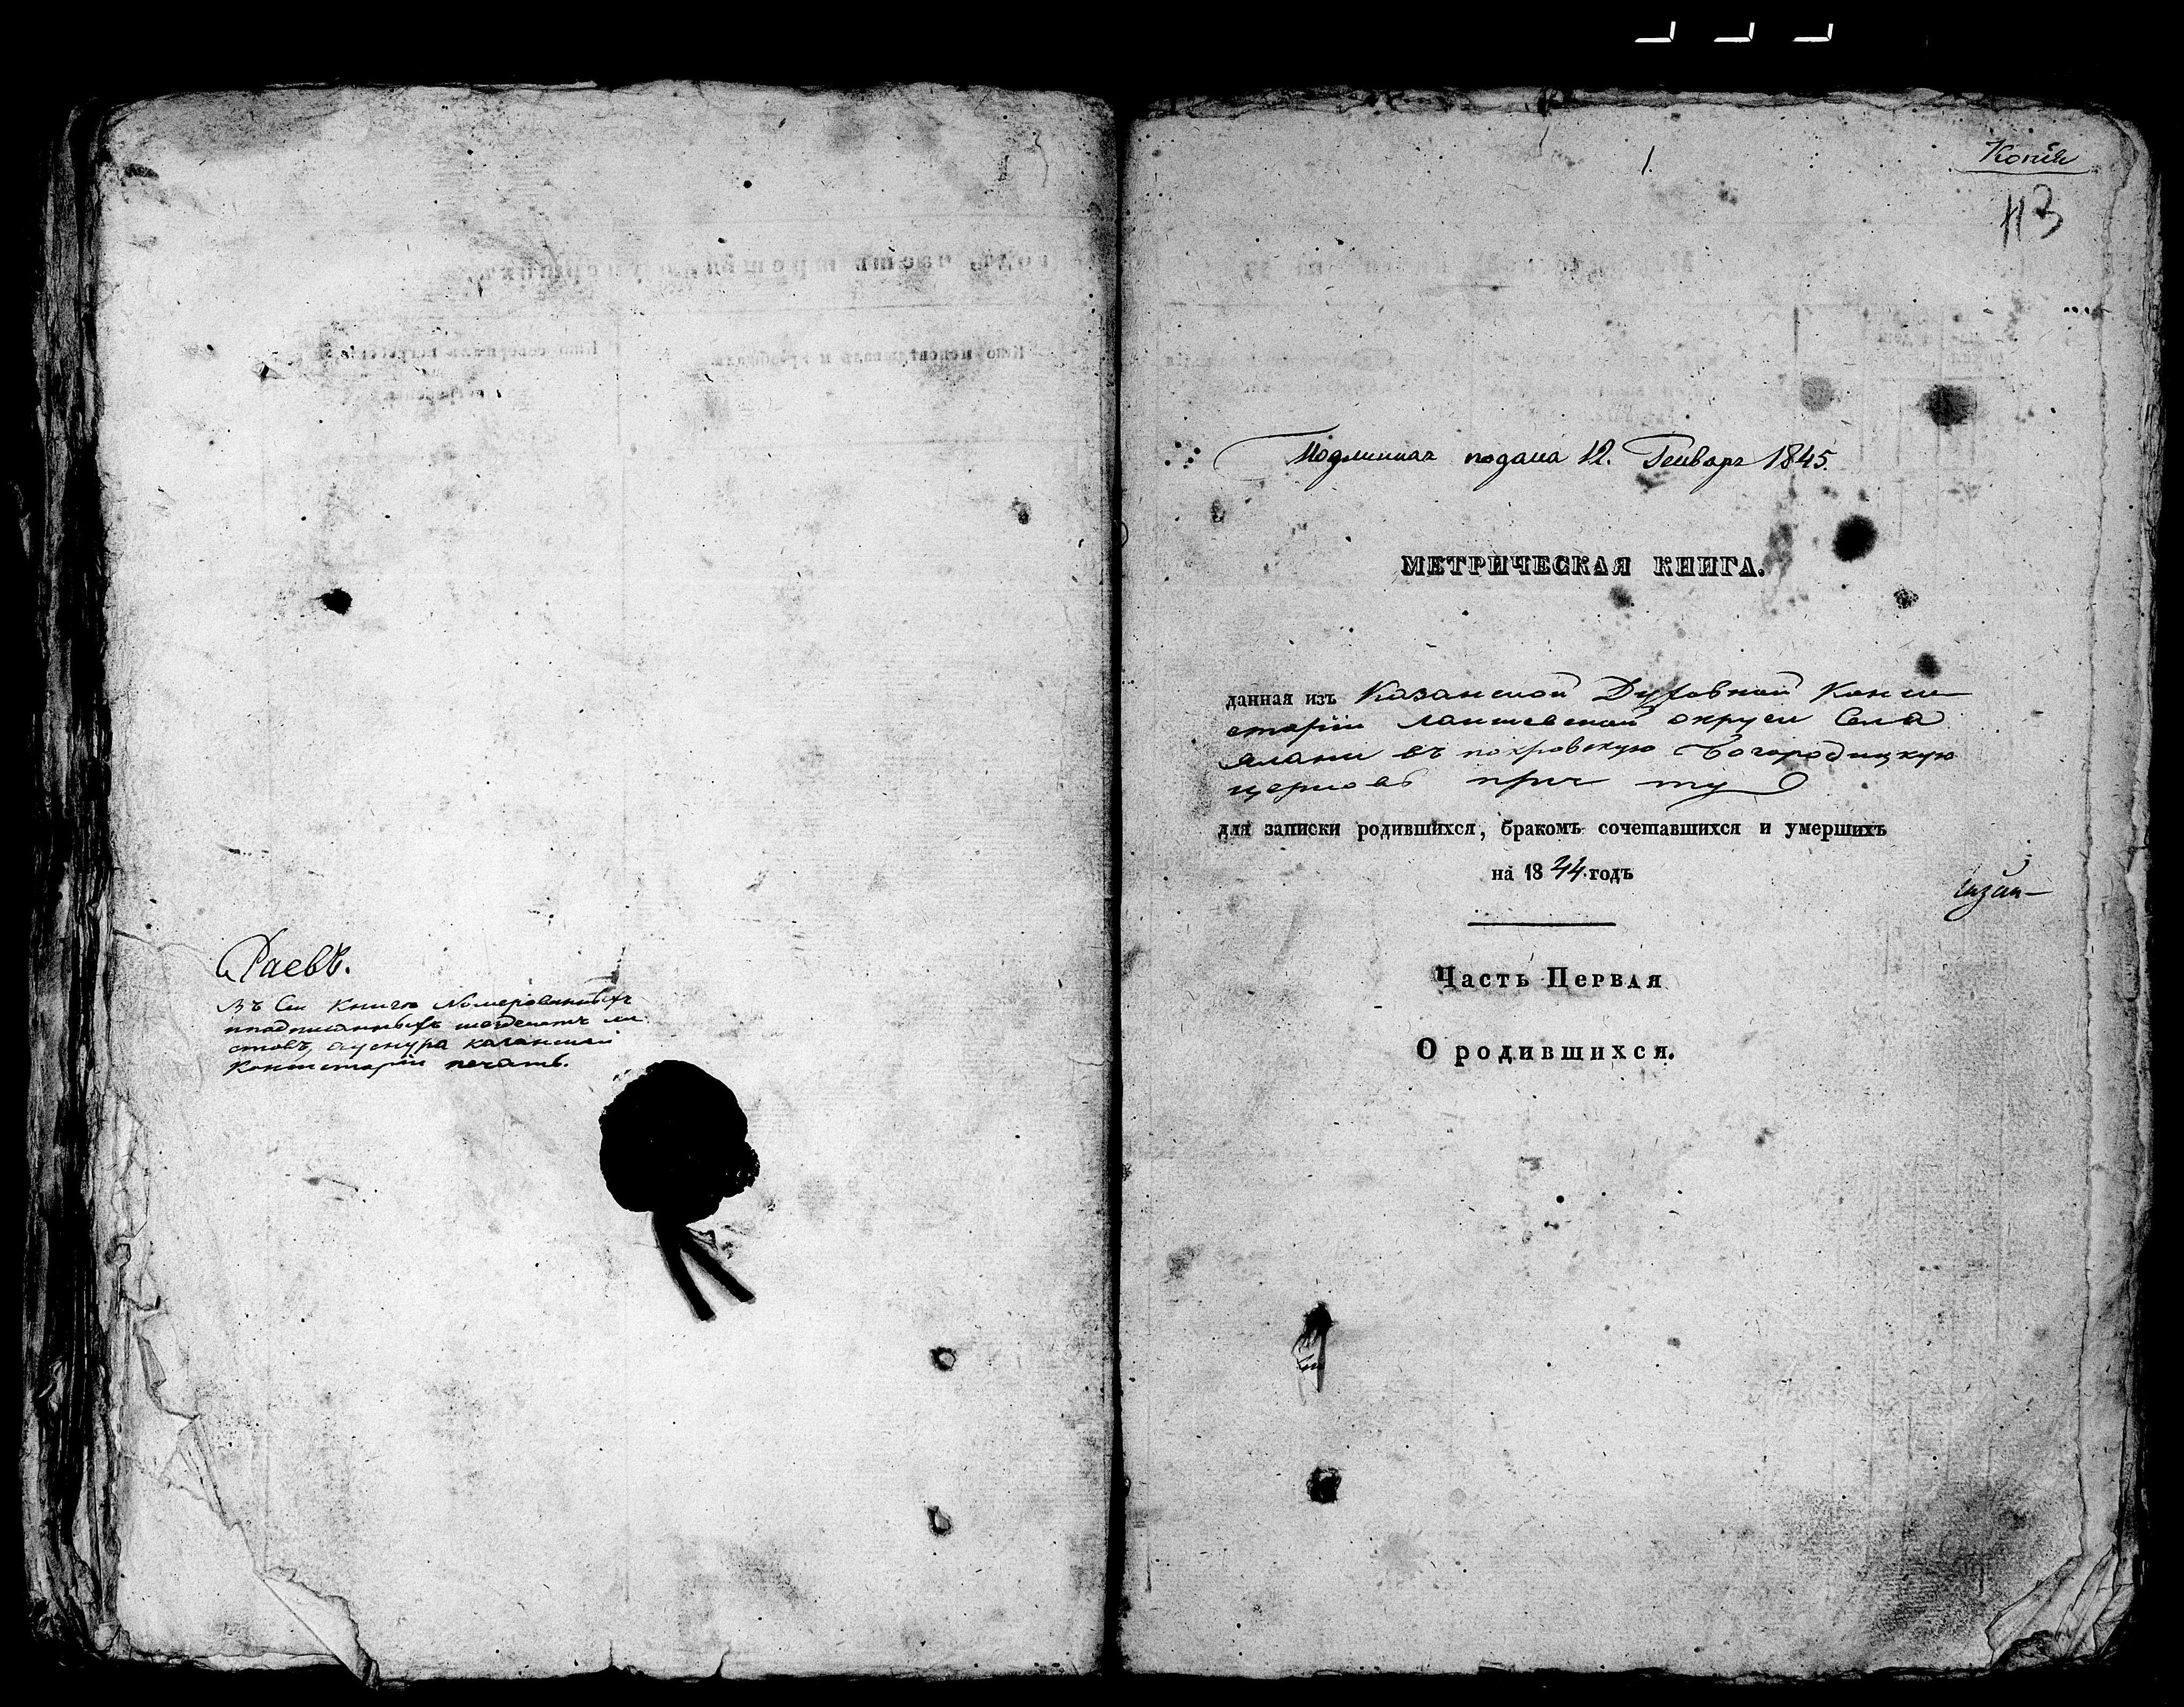 Раевъ.
Въ Сей Книге Номерованныхъ
иподписанныхъ шездесятъ ли
стовъ, аушнура казанской
Консисторіи печать.
1
Копія
113
Подлинная подана 12. Генваря 1845.
МЕТРИЧЕСКАЯ КНИГА.
данная изъ Казанской Духовной Конси
сторіи лаишевской округи Села
Алани въ покровскую Богородицкую
церковь прич ту
для записки родившихся, бракомъ сочетавшихся и умершихъ
на 1844. годъ
Часть Первая
О родившихся.